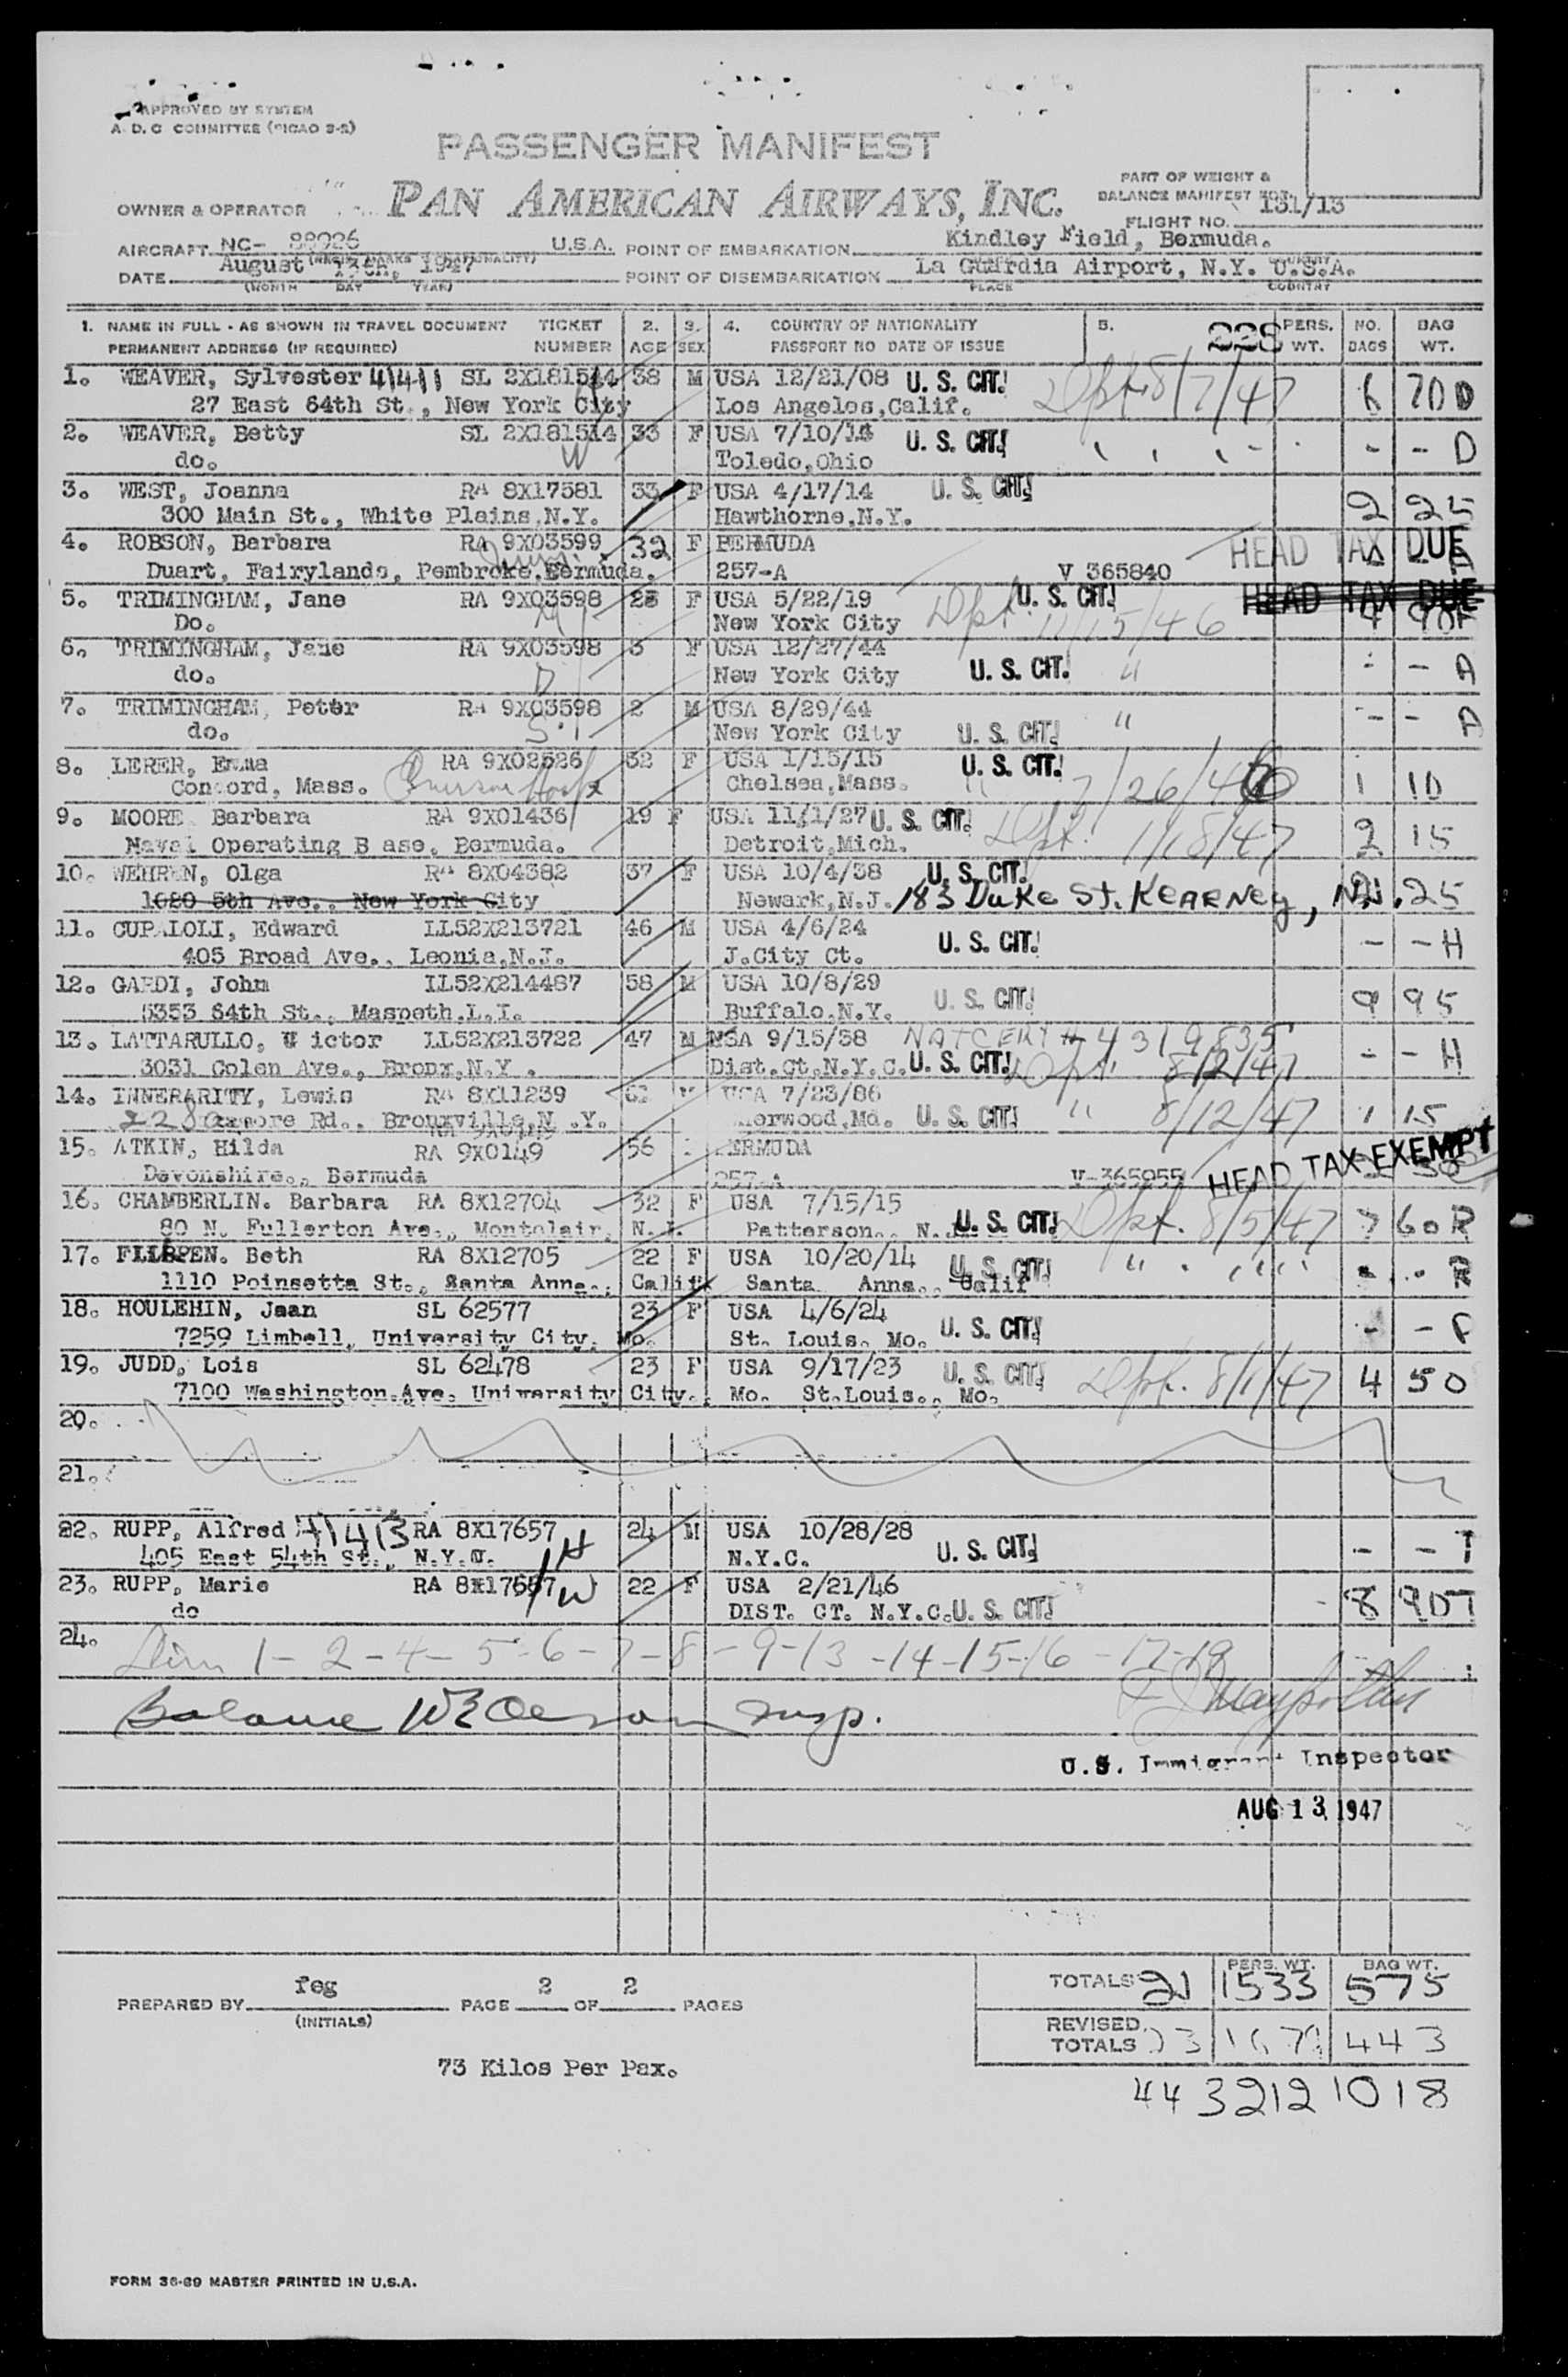 APPROVED BY SYSTEM
A.D.C COMMITTEE (PICAO 2-2)
PASSENGER MANIFEST
OWNER & OPERATOR PAN AMERICAN AIRWAYS, INC.
PART OF WEIGHT &
BALANCE MANIFEST 131/13
FLIGHT NO.
AIRCRAFT NC- 88926 U.S.A. POINT OF EMBARKATION Kindley Field, Bermuda.
DATE August 13th, 1947 POINT OF DISEMBARKATION La Guardia Airport, N.Y. U.S.A.
(MONTH DAY YEAR) PLACE COUNTRY
1. NAME IN FULL - AS SHOWN IN TRAVEL DOCUMENT TICKET 2. 3. 4. COUNTRY OF NATIONALITY 5. 228 PERS. NO. BAG
PERMANENT ADDRESS (IF REQUIRED) NUMBER AGE SEX PASSPORT NO DATE OF ISSUE WT. BAGS WT.
1. WEAVER, Sylvester 41411 SL 2X181514 38 M USA 12/21/08 U. S. CIT. Dpt. 8/7/47 6 70 D
27 East 64th St., New York City Los Angeles, Calif.
2. WEAVER, Betty SL 2X181514 33 F USA 7/10/14 U. S. CIT. - - D
do. W Toledo, Ohio
3. WEST, Joanna RA 8X17581 33 F USA 4/17/14 U. S. CIT. 2 25
300 Main St., White Plains, N.Y. Hawthorne, N.Y.
4. ROBSON, Barbara RA 9X03599 32 F BERMUDA HEAD TAX DUE
Duart, Fairylands, Pembroke, Bermuda. 257-A V 365840
5. TRIMINGHAM, Jane RA 9X03598 28 F USA 5/22/19 U. S. CIT. HEAD TAX DUE
Do. New York City Dpt. 11/15/46 90F
6. TRIMINGHAM, Jane RA 9X03598 3 F USA 12/27/44
do. D New York City U. S. CIT. " - - A
7. TRIMINGHAM, Peter RA 9X03598 2 M USA 8/29/44
do. S. New York City U. S. CIT. " - - A
8. LERER, Emma RA 9X02526 32 F USA 1/15/15 U. S. CIT.
Concord, Mass. Chelsea, Mass. " 7/26/46 1 10
9. MOORE Barbara RA 9X01436 19 F USA 11/1/27 U. S. CIT. Dpt. 1/18/47 2 15
Naval Operating B ase, Bermuda. Detroit, Mich.
10. WEHREN, Olga RA 8X04382 37 F USA 10/4/38 U. S. CIT.
1080 5th Ave., New York City Newark, N.J. 183 DUKE ST. KEARNEY, N.J. 25
11. Edward LL52X213721 46 M USA 4/6/24 U. S. CIT. - - H
405 Broad Ave., Leonia, N.J. J.City Ct.
12. GARDI, John LL52X214487 58 M USA 10/8/29 U. S. CIT. 9 95
5353 84th St., Maspeth, L.I. Buffalo, N.Y.
13. LATTARULLO, V ictor LL52X213722 47 M USA 9/15/38 NAT CERT # 4319835 - - H
3031 Colen Ave., Bronx, N.Y. Dist.Ct.N.Y.C. U. S. CIT. Dpt. 8/2/47
14. INNERARITY, Lewis RA 8X11239 61 M USA 7/23/86
Rd., Bronxville, N.Y. U. S. CIT. " 8/12/47 1 15
15. ATKIN, Hilda RA 9X0149 56 BERMUDA HEAD TAX EXEMPT
Devonshire., Bermuda 257-A V-365955
16. CHAMBERLIN. Barbara RA 8X12704 32 F USA 7/15/15
80 N. Fullerton Ave., Montclair, N.J. Patterson., N.J. U. S. CIT. Dpt. 8/5/47 7 60 R
17. Beth RA 8X12705 22 F USA 10/20/14 U. S. CIT. "
1110 Poinsetta St., Santa Anna., Calif Santa Anna., Calif - - R
18. HOULEHIN, Jean SL 62577 23 F USA 4/6/24 U. S. CIT.
7259 Limbell, University City, Mo. St. Louis, Mo. - - F
19. JUDD, Lois SL 62478 23 F USA 9/17/23 U. S. CIT. Dpt. 8/1/47 4 50
7100 Washington.Ave. University City., Mo. St.Louis., Mo.
20.
21.
22. RUPP, Alfred 41413 RA 8X17657 H 24 M USA 10/28/28 U. S. CIT. - - T
405 East 54th St., N.Y.C. N.Y.C.
23. RUPP, Marie RA 8X17657 W 22 F USA 2/21/46 8 90T
do DIST. CT. N.Y.C. U. S. CIT.
24. 1-2-4-5-6-7-8-9-13-14-15-16-17-19
Balance Insp.
U.S. Immigrant Inspector
AUG 13 1947
TOTALS 21 PERS. WT. 1533 BAG WT. 575
PREPARED BY feg PAGE 2 OF 2 PAGES
(INITIALS)
REVISED TOTALS 23 443
73 Kilos Per Pax.
44 3212 1018
FORM 36-69 MASTER PRINTED IN U.S.A.